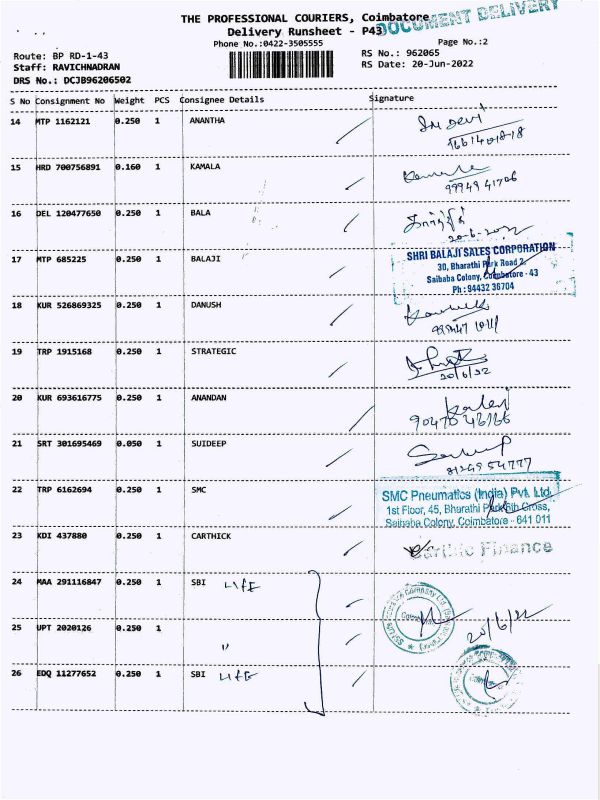 THE PROFESSIONAL COURIERS, Coimbatore
DOCUMENT DELIVERY
Delivery Runsheet - P43
Phone No.:0422-3505555
Page No.:2
Route: BP RD-1-43
RS No.: 962065
Staff: RAVICHNADRAN
RS Date: 20-Jun-2022
DRS No.: DCJB96206502
S No Consignment No Weight PCS Consignee Details Signature
14 MTP 1162121 0.250 1 ANANTHA
15 HRD 700756891 0.160 1 KAMALA
99949 41706
16 DEL 120477650 0.250 1 BALA
20-6-2022
17 MTP 685225 0.250 1 BALAJI
SHRI BALAJI SALES CORPORATION
30, Bharathi Park Road 2,
Saibaba Colony, Coimbatore - 43
Ph : 94432 36704
18 KUR 526869325 0.250 1 DANUSH
19 TRP 1915168 0.250 1 STRATEGIC
20/6/22
20 KUR 693616775 0.250 1 ANANDAN
90470 46166
21 SRT 301695469 0.050 1 SUIDEEP
81249 54777
22 TRP 6162694 0.250 1 SMC
SMC Pneumatics (India) Pvt. Ltd.
1st Floor, 45, Bharathi Park Cross,
Saibaba Colony, Coimbatore - 641 011
23 KDI 437880 0.250 1 CARTHICK
Finance
24 MAA 291116847 0.250 1 SBI LIFE
25 UPT 2020126 0.250 1 "
20/6/22
26 EDQ 11277652 0.250 1 SBI LIFE